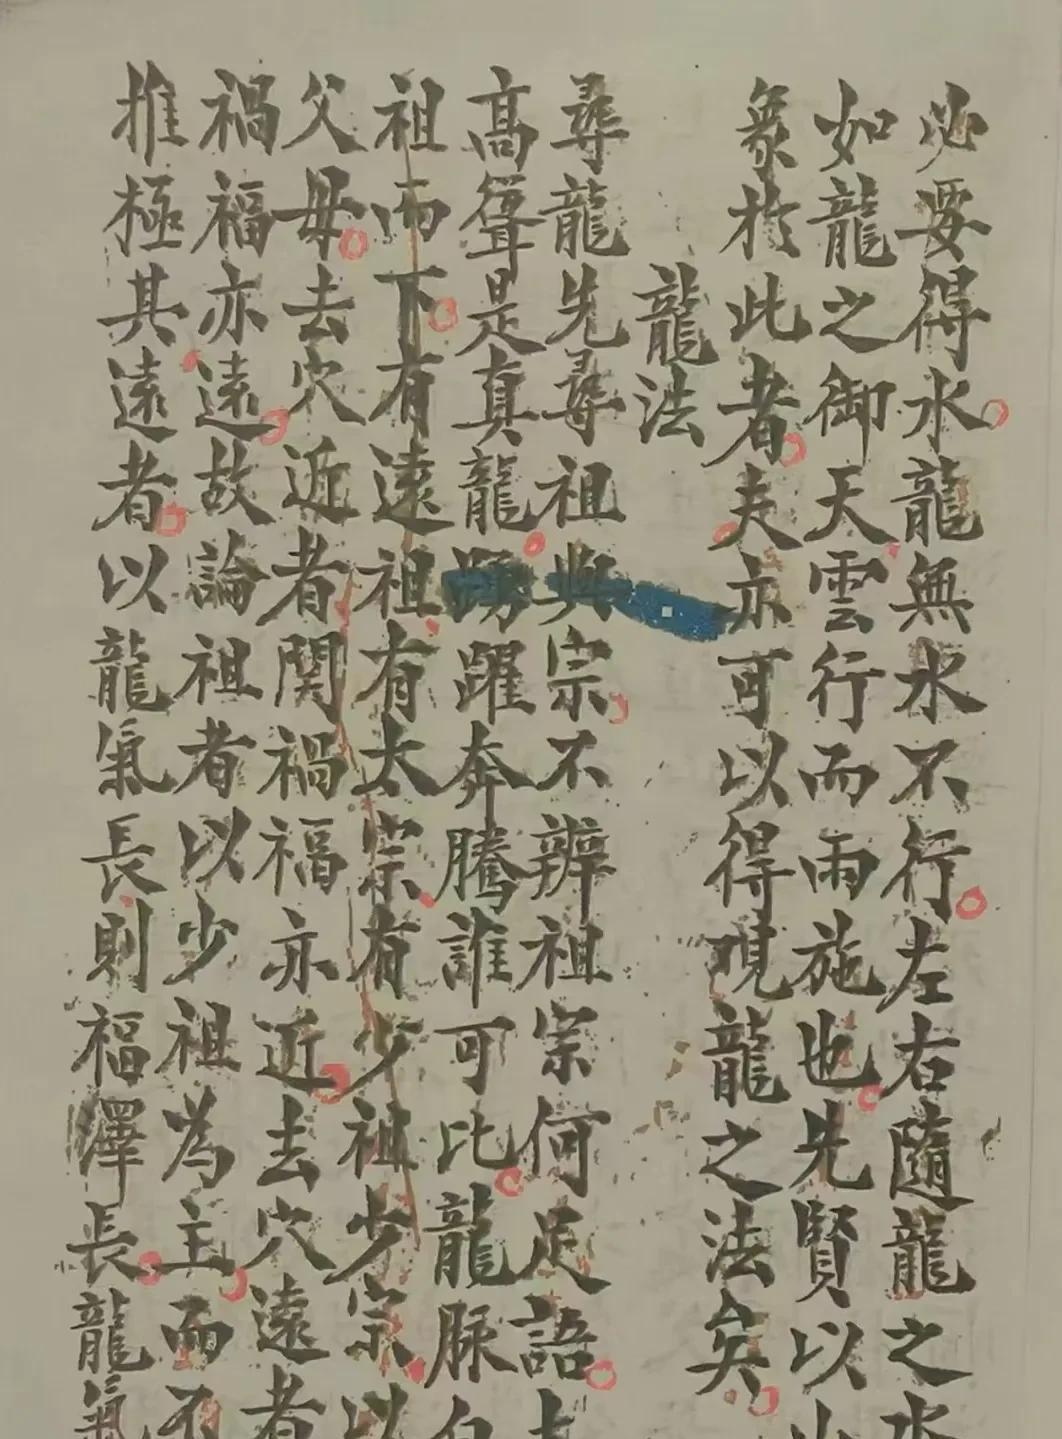 必要得水龍無水不行左右隨龍之水
如龍之御天雲行而雨施也先賢以
象於此者夫亦可以得覌龍之法矣
龍法
尋龍先尋祖與宗不辨祖宗何足語
高聳是真龍踴躍奔騰誰可比龍脉
祖而下有遠祖有太宗有少祖少宗以
父母去穴近者関禍福亦近去穴遠者
禍福亦遠故論祖者以少祖為主而不
推極其遠者以龍氣長則福澤長龍氣